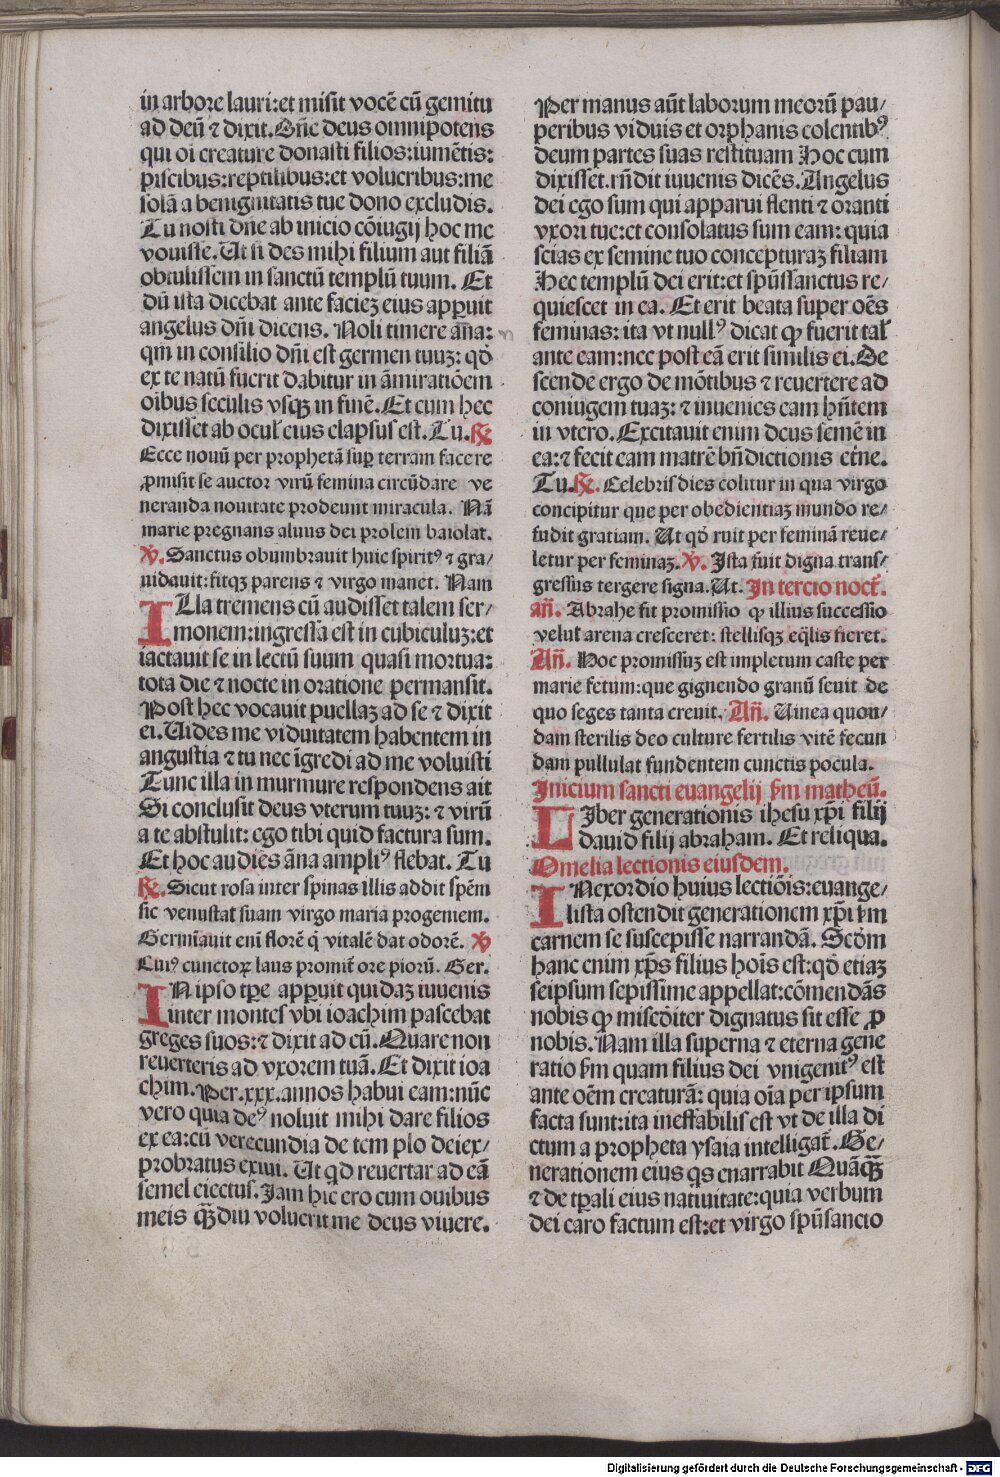 in arbore lauri:et misit vocē cū gemitu
ad deū ⁊ dixit.Dn̄e deus omnipotens
qui oi creature donasti filios:iumētis:
piscibus:reptilibus:et volucribus:me
solā a benignitatis tue dono excludis.
Tu nosti dn̄e ab inicio cōiugij hoc me
vouisse.Ut si des mihi filium aut filiā
obtulissem in sanctū templū tuum. Et
dū ista dicebat ante faciez eius apꝑuit
angelus dn̄i dicens. Noli timere an̄a:
qm̄ in consilio dn̄i est germen tuuz: qd̄
ex te natū fuerit dabitur in āmiratiōem
oībus seculis vsqꝫ in finē.Et cum hec
dixisset ab ocul' eius elapsus est.Tu.℟
Ecce nouū per prophetā suꝑ terram facere
ꝓmisit se auctor virū femina circūdare ve
neranda nouitate prodeunt miracula. Nā
marie pregnans aluus dei prolem baiolat.
℣. Sanctus obumbrauit huic spiritꝰ ⁊ gra/
uidauit:fitqꝫ parens ⁊ virgo manet. Nam
ILla tremens cū audisset talem ser/
monem:ingressa est in cubiculuz:et
iactauit se in lectū suum quasi mortua:
tota die ⁊ nocte in oratione permansit.
Post hec vocauit puellaz ad se ⁊ dixit
ei.Uides me viduitatem habentem in
angustia ⁊ tu nec īgredi ad me voluisti
Tunc illa in murmure respondens ait
Si conclusit deus vterum tuuz: ⁊ virū
a te abstulit: ego tibi quid factura sum.
Et hoc audiēs an̄a ampliꝰ flebat. Tu
℟. Sicut rosa inter spinas illis addit spēm
sic venustat suam virgo maria progeniem.
Germīauit eni florē q̄ vitalē dat odorē. ℣
Cuiꝰ cunctoꝝ laus promit̄ ore piorū. Ger.
IN ipso tp̄e apꝑuit quidaz iuuenis
inter montes vbi ioachim pascebat
greges suos:⁊ dixit ad eū.Quare non
reuerteris ad vxorem tuā. Et dixit ioa
chim.Per.xxx.annos habui eam:nūc
vero quia deꝰ noluit mihi dare filios
ex ea:cū verecundia de tem plo deiex/
probratus exiui. Ut qd reuertar ad eā
semel eiectus.Jam hic ero cum ouibus
meis qꝫ̄diu voluerit me deus viuere.
Per manus aūt laborum meorū pau/
peribus viduis et orphanis colentibꝰ
deum partes suas restituam Hoc cum
dixisset.rn̄dit iuuenis dicēs.Angelus
dei ego sum qui apparui flenti ⁊ oranti
vxori tue:et consolatus sum eam: quia
scias ex semine tuo concepturaz filiam
Hec templū dei erit:et spūssanctus re/
quiescet in ea. Et erit beata super oēs
feminas: ita vt nullꝰ dicat qꝫ fuerit tal'
ante eam:nec post eā erit similis ei.De
scende ergo de mōtibus ⁊ reuertere ad
coniugem tuaz: ⁊ inuenies eam hn̄tem
in vtero. Excitauit enim deus semē in
ea:⁊ fecit eam matrē bn̄dictionis et̄ne.
Tu.℟. Celebris dies colitur in qua virgo
concipitur que per obedientiaz mundo re/
fudit gratiam. Ut qd̄ ruit per feminā reue/
letur per feminaz. ℣. Ista fuit digna trans/
gressus tergere signa.Ut. In tercio noct̄.
an̄. Abrahe fit promissio qꝫ illius successio
velut arena cresceret: stellisqꝫ eq̄lis fieret.
An̄. Hoc promissuz est impletum caste per
marie fetum:que gignendo granū seuit de
quo seges tanta creuit. An̄. Uinea quon/
dam sterilis deo cultore fertilis vitē fecun
dam pullulat fundentem cunctis pocula.
Inicium sancti euangelij s̄m matheū.
LIber generationis ihesu xp̄i filij
dauid filij abraham. Et reliqua.
Omelia lectionis eiusdem.
INexordio huius lectiōis:euange/
lista ostendit generationem xp̄i s̄m
carnem se suscepisse narrandā. Scd̄m
hanc enim xp̄s filius hoīs est:qd̄ etiaz
seipsum sepissime appellat:cōmendās
nobis qꝫ misc̄diter dignatus sit esse ꝓ
nobis. Nam illa superna ⁊ eterna gene
ratio s̄m quam filius dei vnigenitꝰ est
ante oēm creaturā: quia oīa per ipsum
facta sunt:ita ineffabilis est vt de illa di
ctum a propheta ysaia intelligat̄. Ge/
nerationem eius qs enarrabit Quāqꝫ̄
⁊ de tp̄ali eius natiuitate:quia verbum
dei caro factum est:et virgo spūsancto
Digitalisierung gefördert durch die Deutsche Forschungsgemeinschaft - DFG